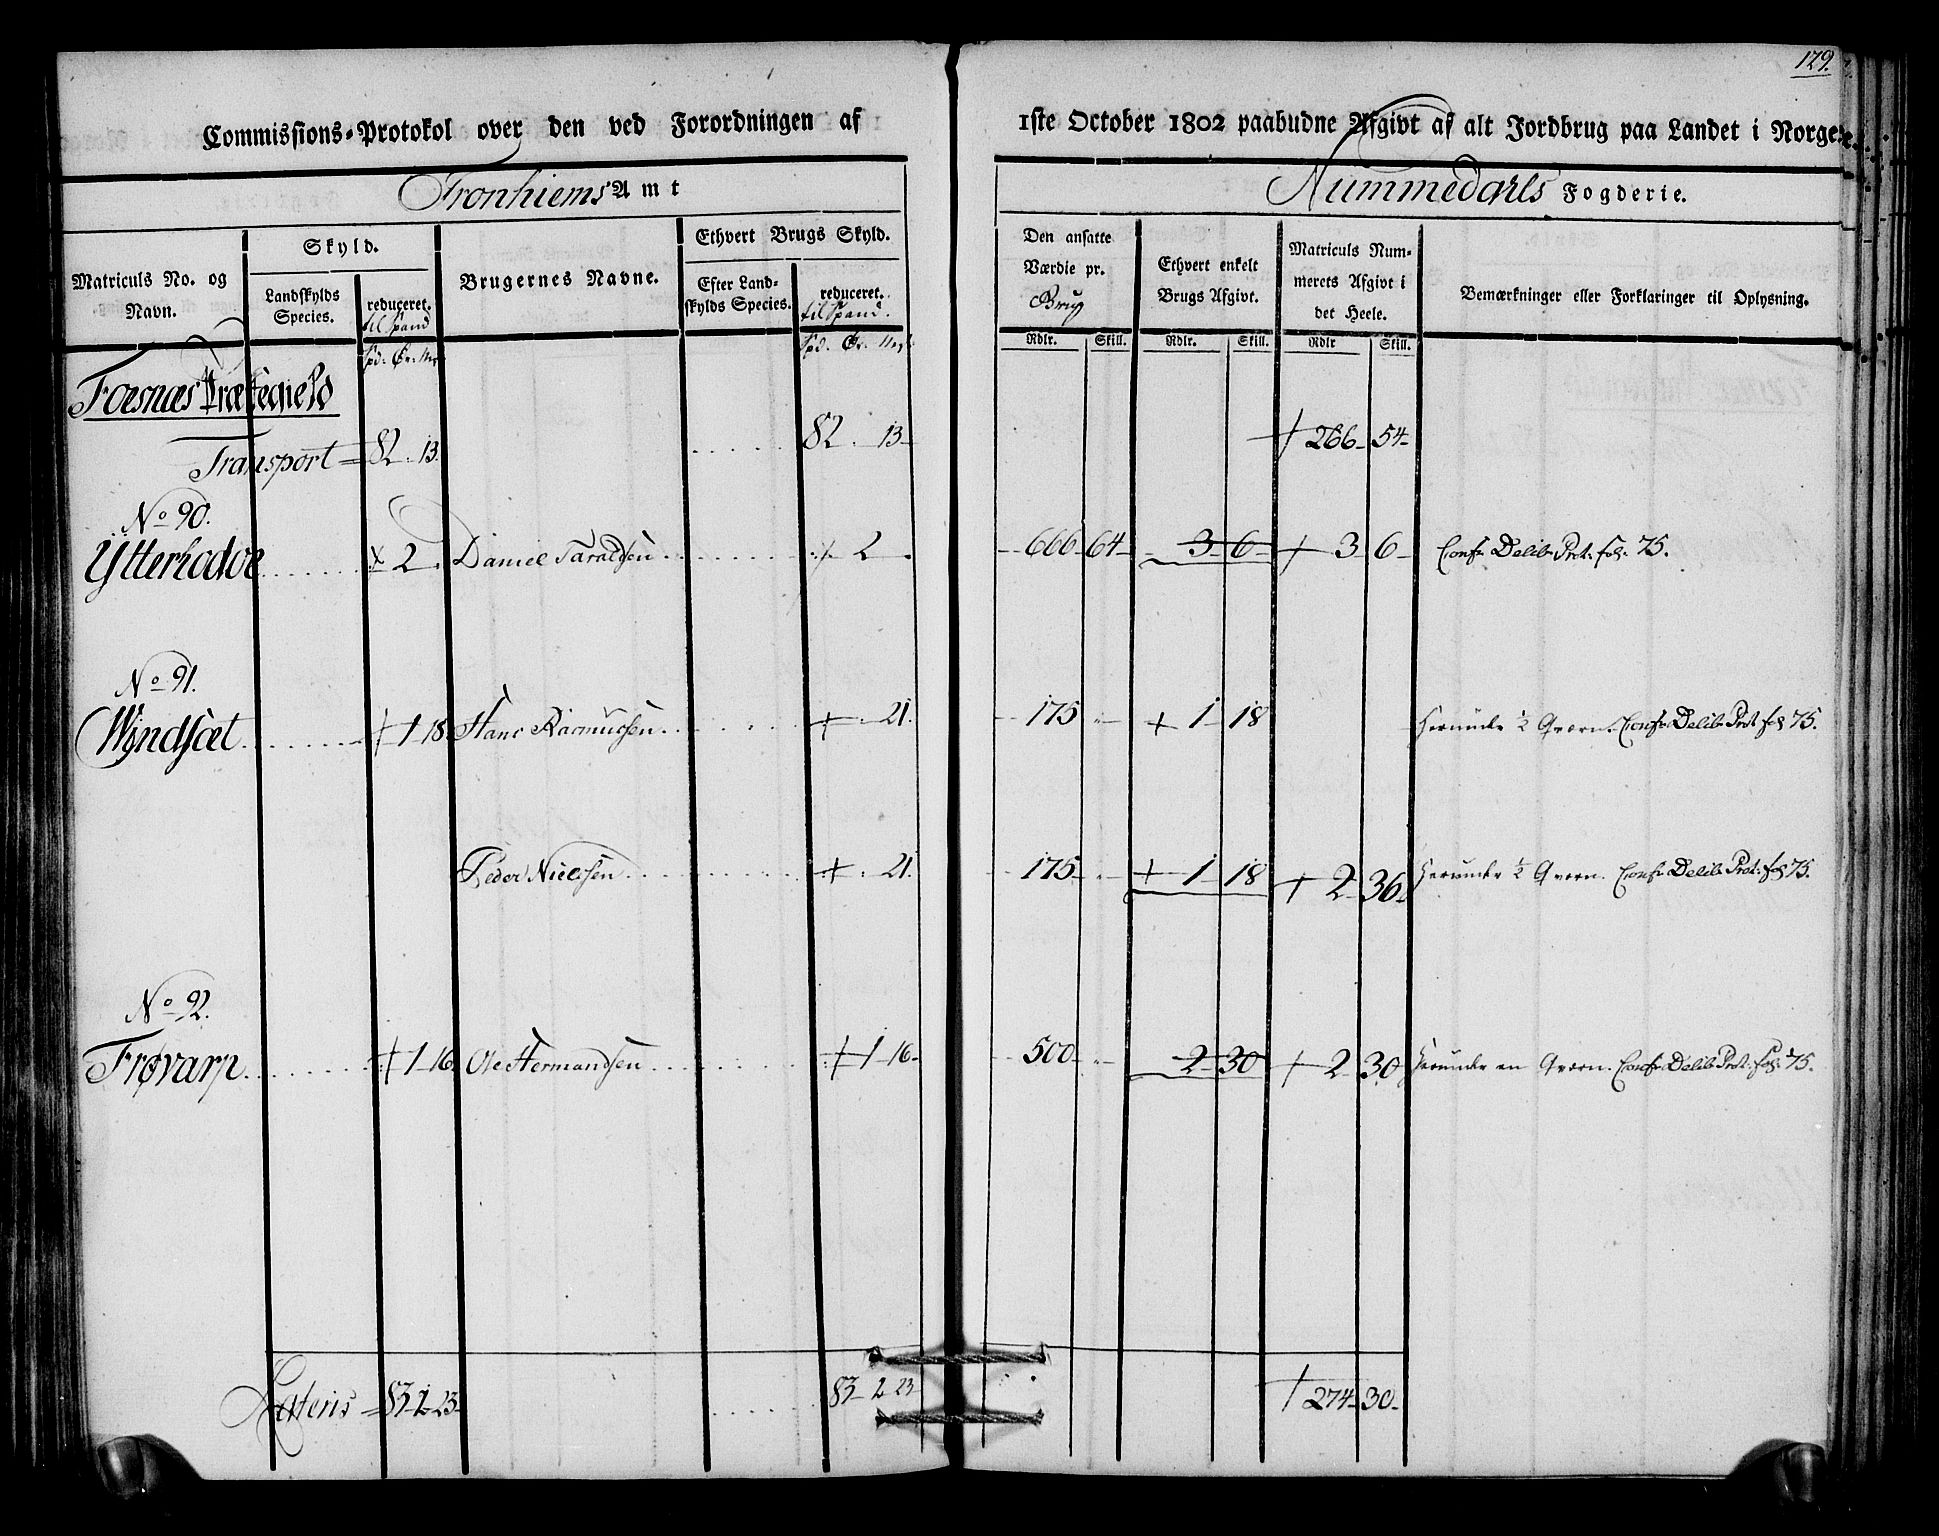 129.
Commissions-Protokol over den ved Forordningen af 1ste October 1802 paabudne Afgivt af alt Jordbrug paa Landet i Norge.
Tronhiems Amt Nummedahls Fogderie.
Matriculs No. og Navn.
Skyld.
Landskylds Species.
reduceret. til Spand
Spd. Ør. Mrk
Brugernes Navne.
Ethvert Brugs Skyld.
Efter Landskylds Species.
reduceret. til Spand.
Spd. Ør. Mrk
Den ansatte Værdie pr. Brug
Rdlr. Skill.
Ethvert enkelt Brugs Afgivt.
Rdlr. Skill.
Matriculs Nummerets Afgivt i det Heele.
Rdlr Skill.
Bemærkninger eller Forklaringer til Oplysning.
Foesnæs Præstegield
Transport = 82. 13. 82. 13- 266- 54-
No 90.
Ytterhodoe 2. Daniel Taraldsen 2. 666 64- 3- 6- 3 6- Confr Delib. Prot. fol. 75.
No 91.
Wyndsæt 1 18 Hans Rasmussen 21. 175 1- 18 Herunder ½ Qvern. Confr Delib. Prot. fol 75.
Peder Nielsen 21. 175- 1 18 2- 36- Herunder ½ Qvern. Confr Delib. Prot. fol 75.
No 92.
Frøvarp 1 16 Ole Hermandsen 1 16- 500- 2- 30 2 30 Herunder en Qvern. Confr Delib. Prot. fol. 75.
Lateris = 83- 2- 23- 83- 2 23- 274- 30-